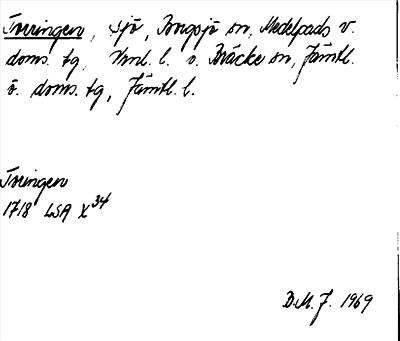 Torringen, sjö, Borgsjö sn, Medelpads v.
doms. tg, Vnl. l. o. Bräcke sn, Jämtl.
ö. doms. tg, Jämtl. l.
Toringen
1718 LSA X 34
B.M.J. 1969